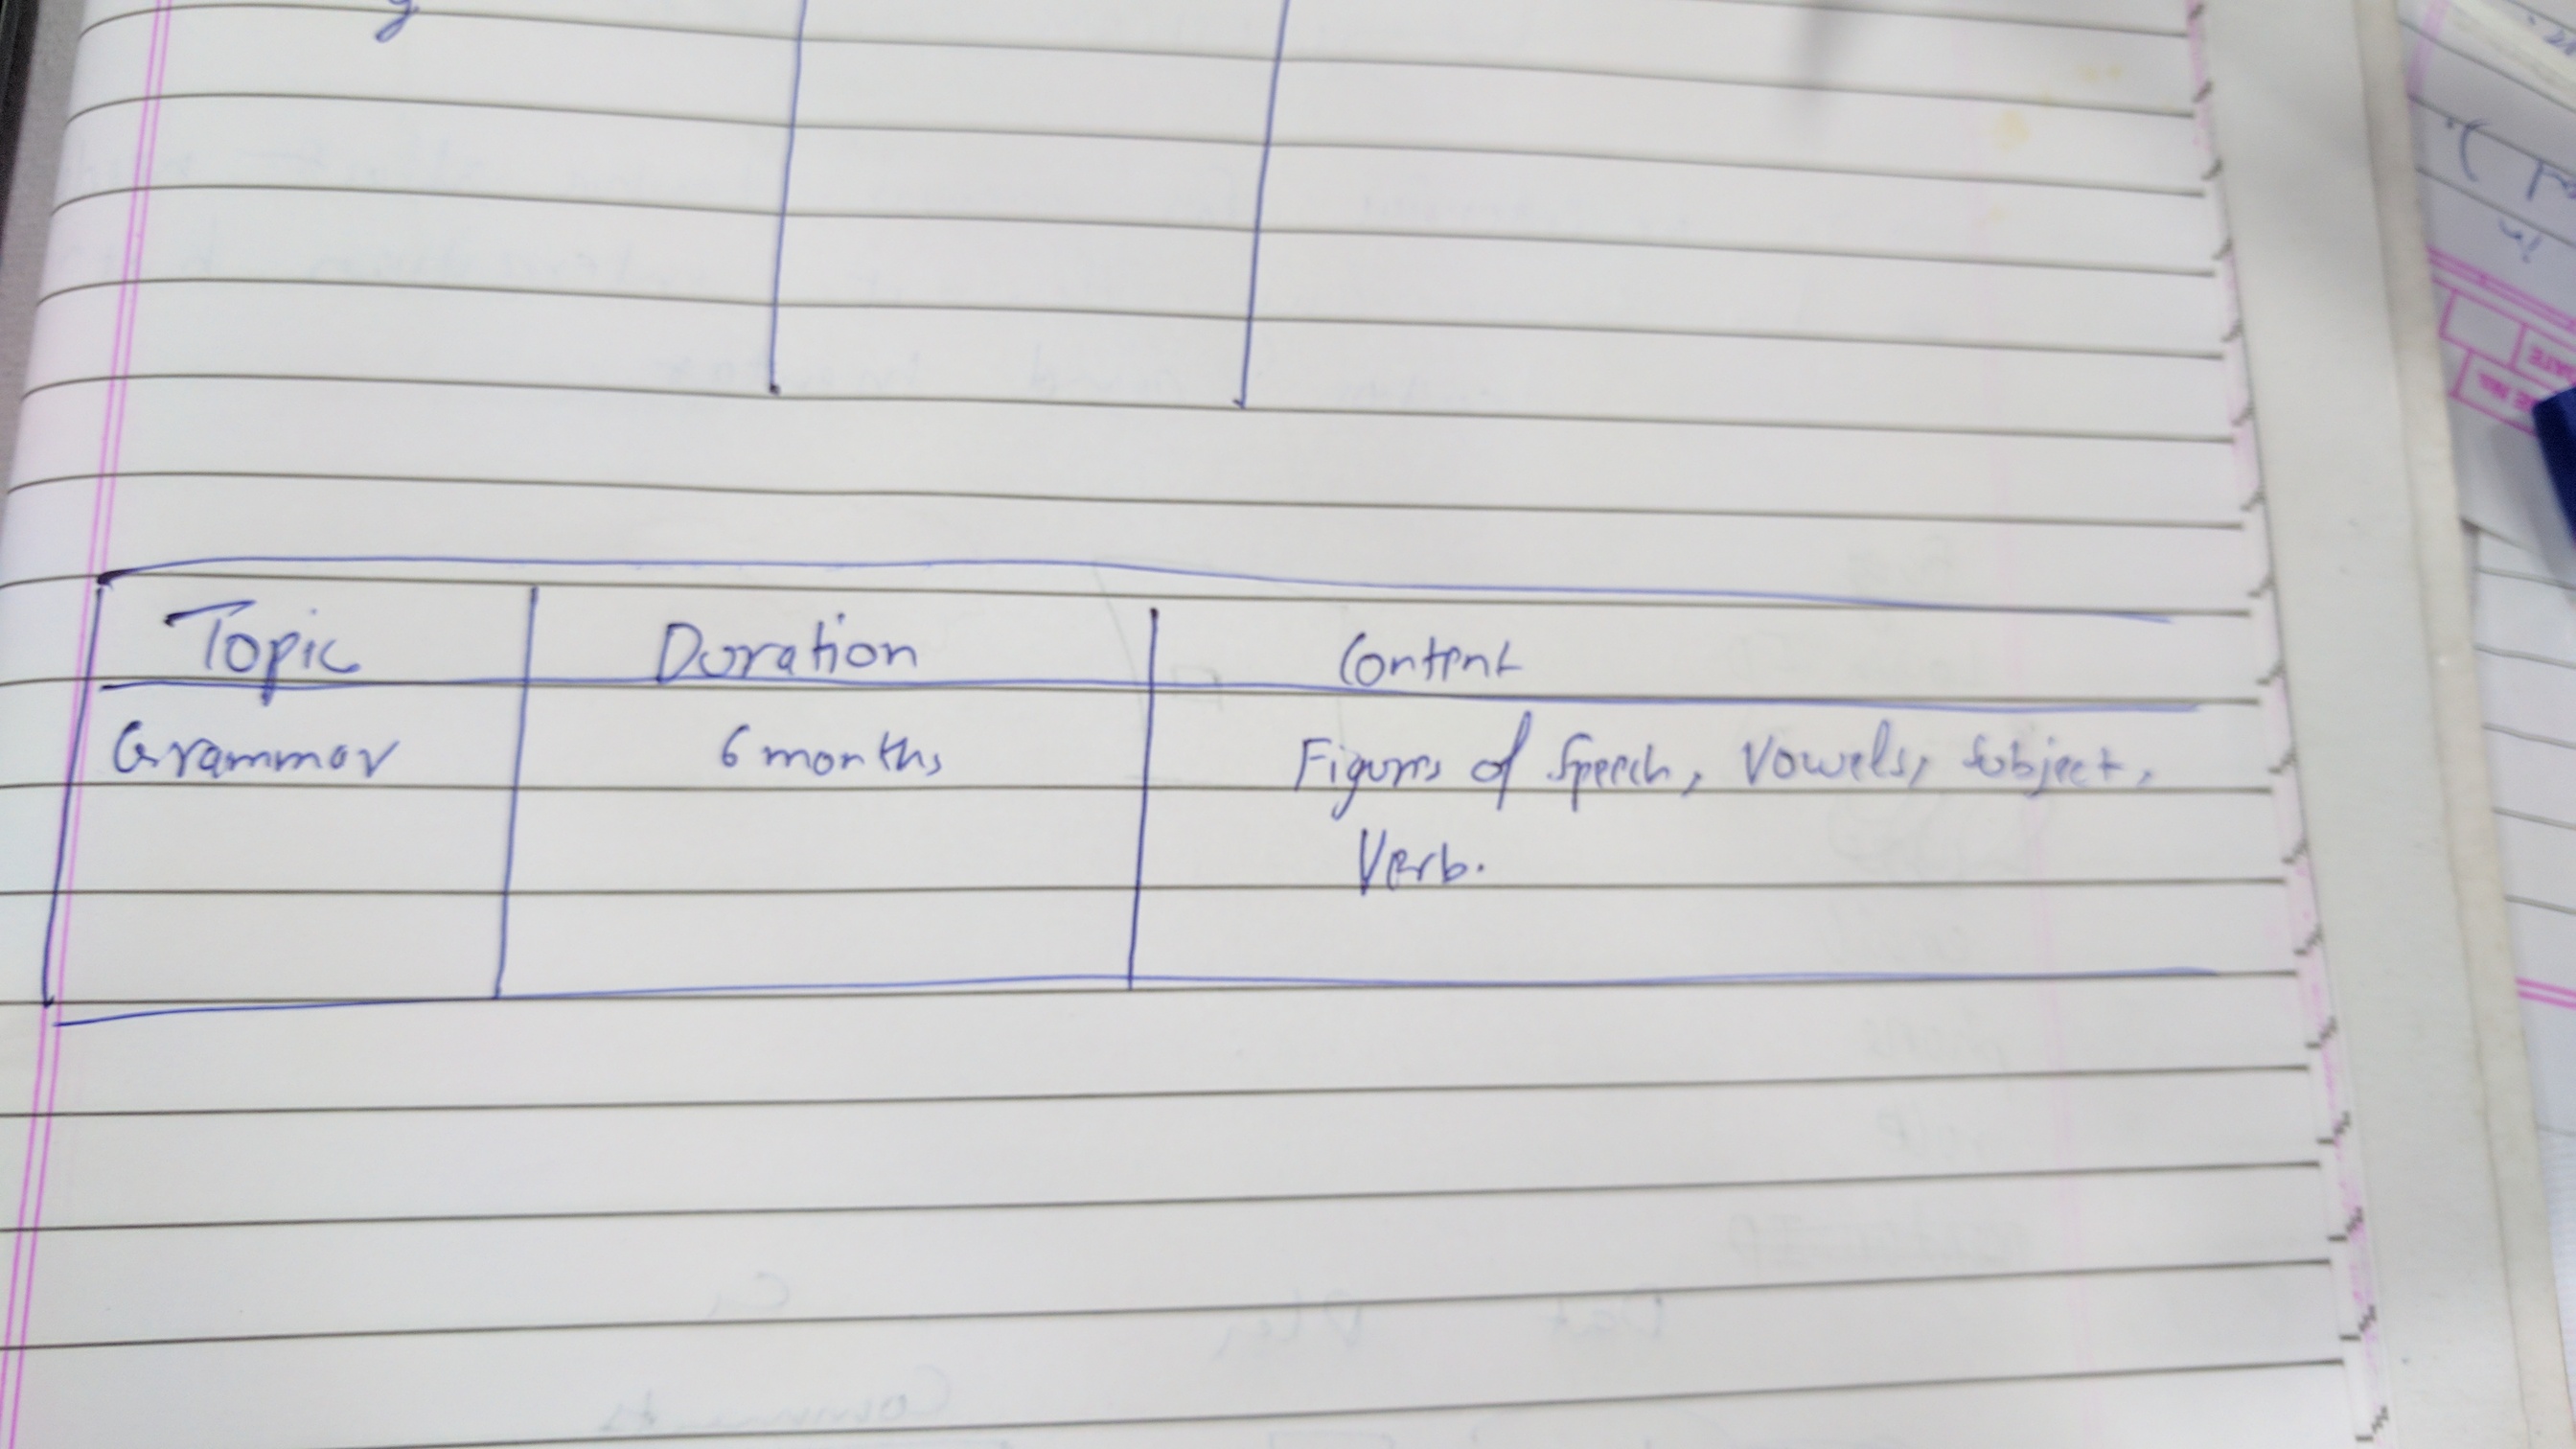 Topic Duration Content
Grammar 6 months Figures of Speech, Vowels, Subject,
Verb.